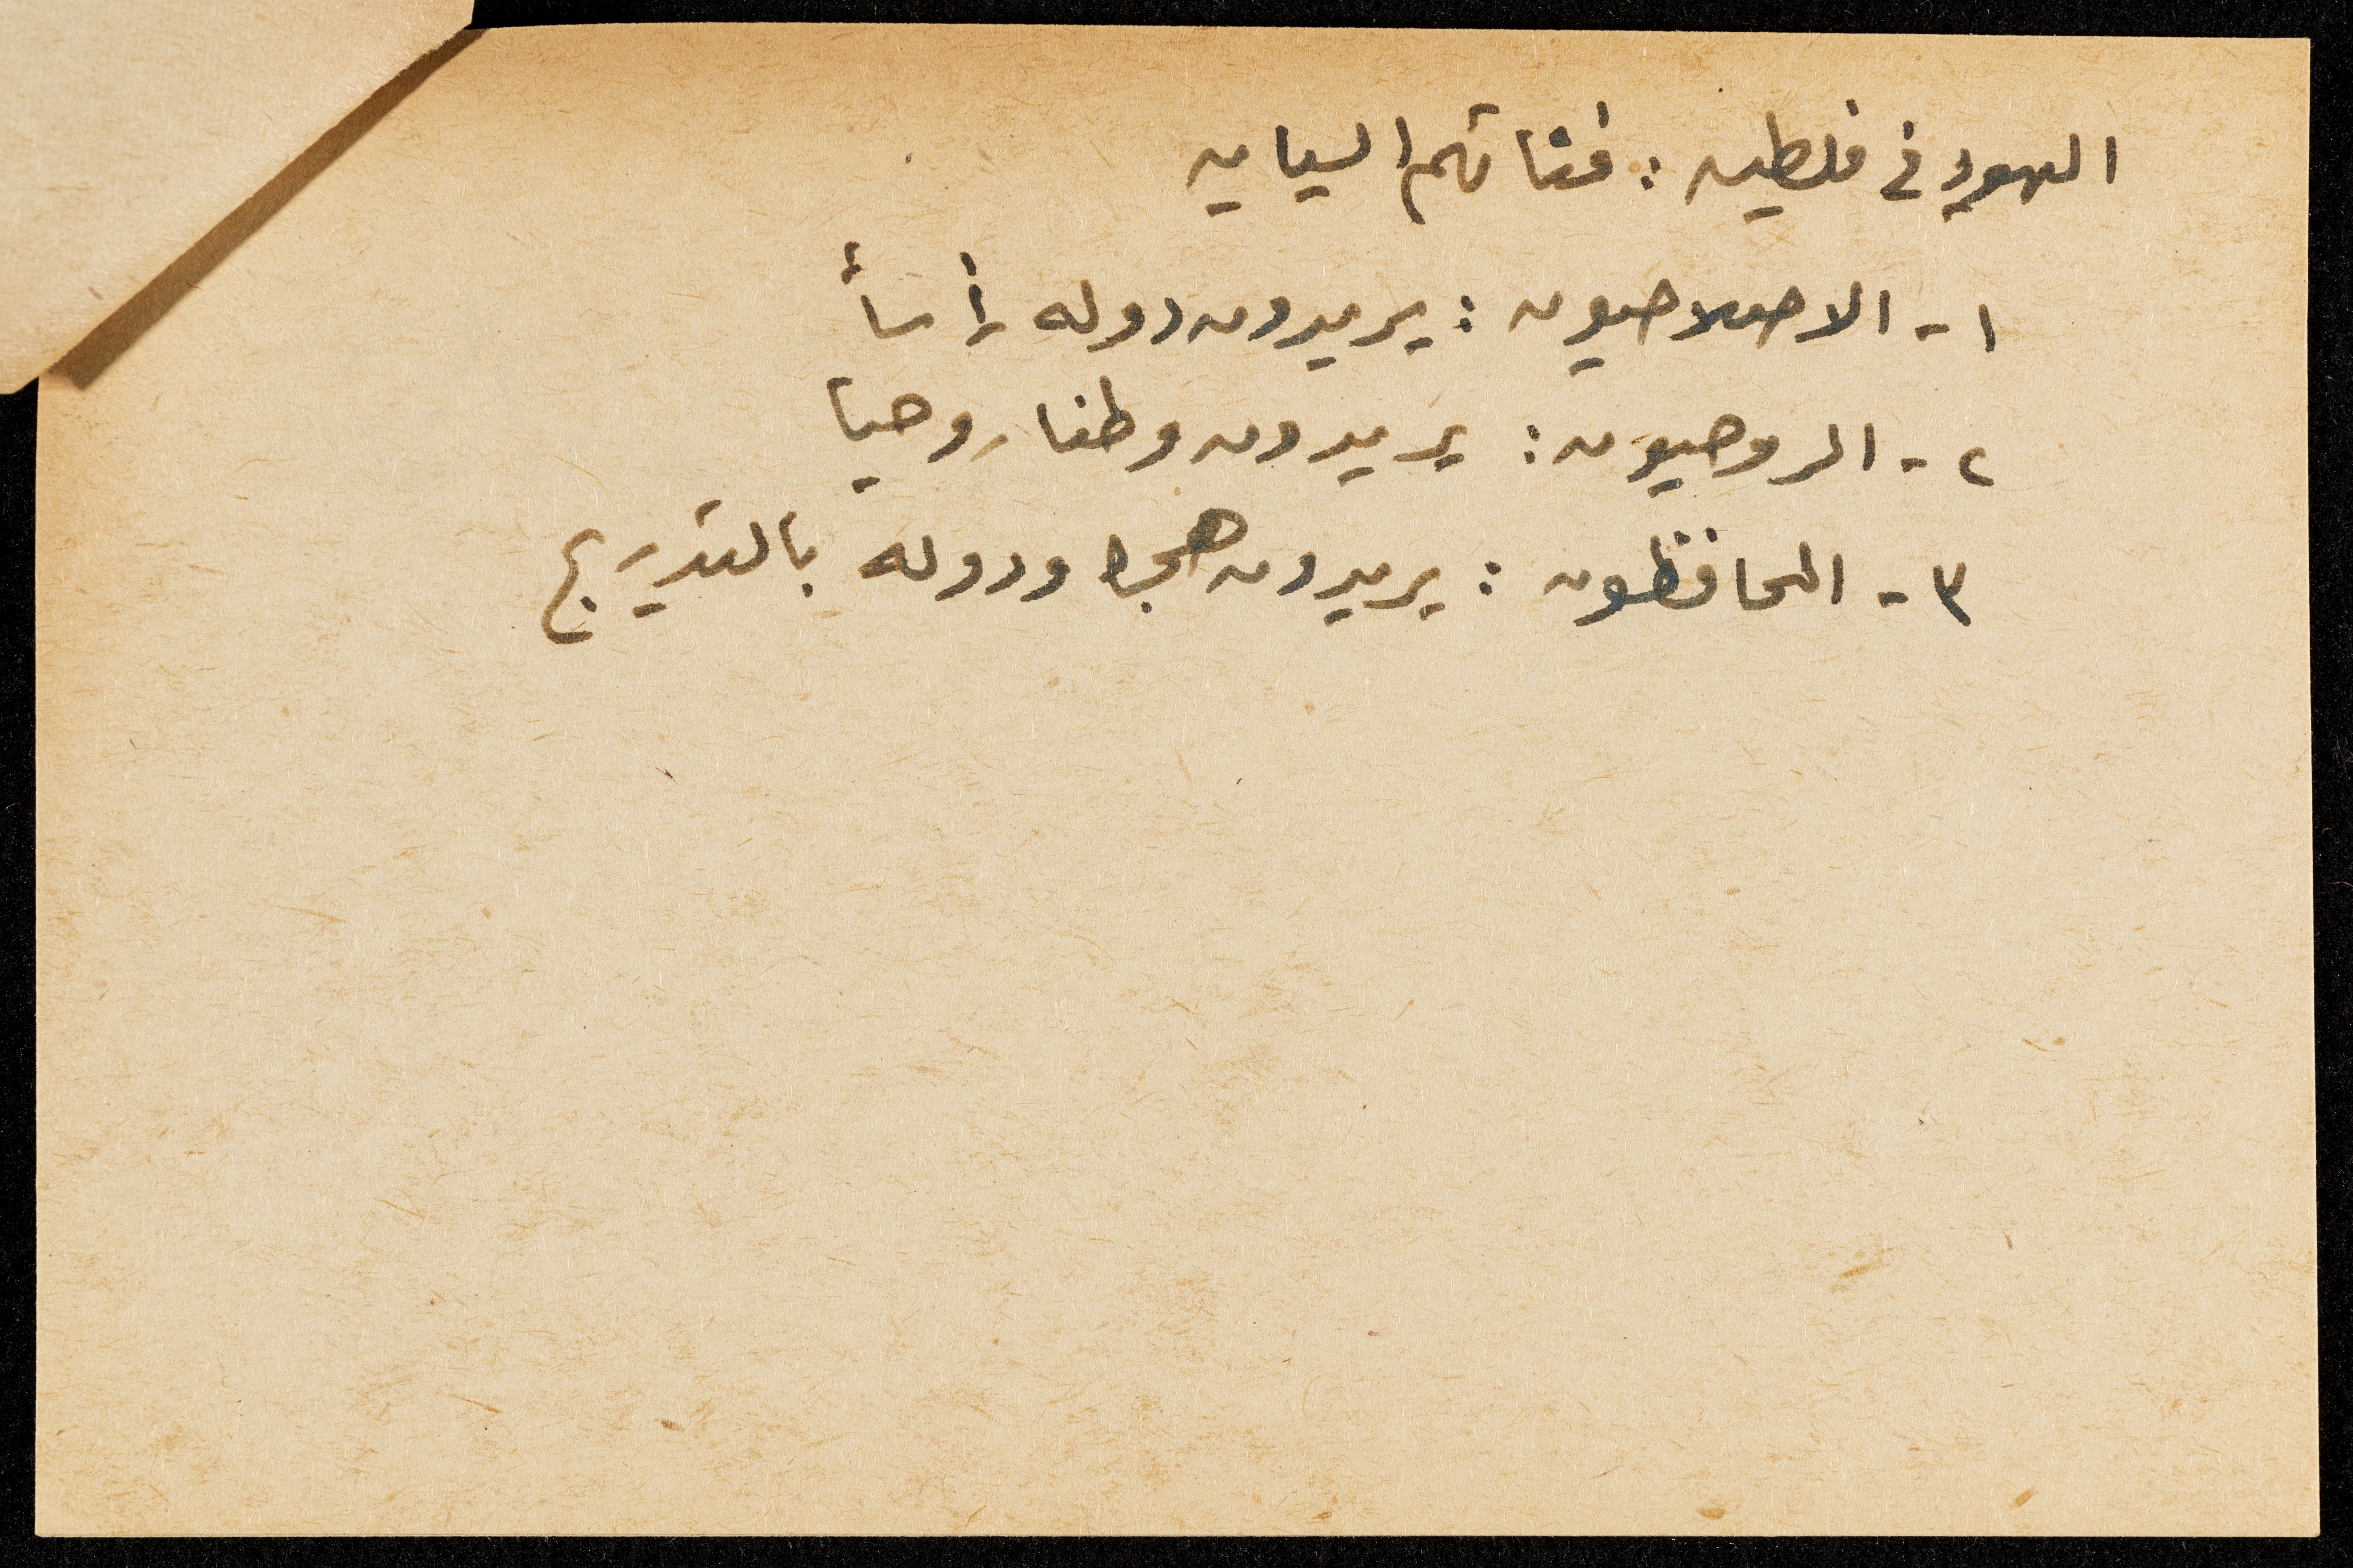 اليهود في فلسطين : فئاتهم السياسيه
١ - الاصلاحيون : يريدون دوله رأسأ
٢ - الروحيون : يريدون وطنا روحيا
٣ - المحافظون : يريدون ودوله بالتدريج